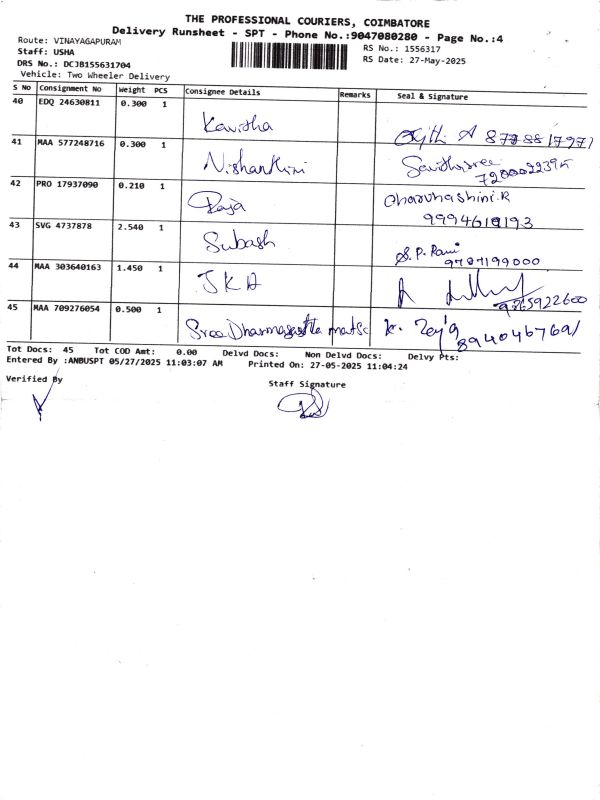 THE PROFESSIONAL COURIERS, COIMBATORE
Delivery Runsheet - SPT - Phone No.:9047080280 - Page No.:4
Route: VINAYAGAPURAM
Staff: USHA
DRS No.: DCJB155631704
Vehicle: Two Wheeler Delivery
RS No.: 1556317
RS Date: 27-May-2025
S No Consignment No Weight PCS Consignee Details Remarks Seal & Signature
40 EDQ 24630811 0.300 1 Kavitha
41 MAA 577248716 0.300 1 Nishanthini
42 PRO 17937090 0.210 1 Raja Charuhashini.R
9994619193
43 SVG 4737878 2.540 1 Subash S.P. Rani
9787199000
44 MAA 303640163 1.450 1 JKA
9865922600
45 MAA 709276054 0.500 1 Sree Dharmasastha matsc K.
8940467691
Tot Docs: 45 Tot COD Amt: 0.00 Delvd Docs: Non Delvd Docs: Delvy Pts:
Entered By :ANBUSPT 05/27/2025 11:03:07 AM Printed On: 27-05-2025 11:04:24
Verified By Staff Signature